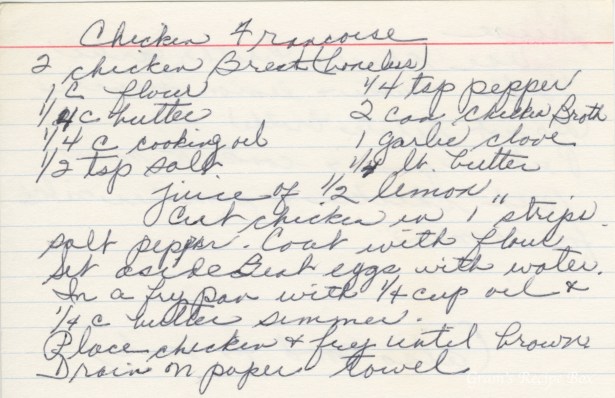 Chicken Francoise
2 chicken Brest (boneless)
1 C flour 1/4 tsp pepper
1/4 c butter 2 can chicken Broth
1/4 c cooking oil 1 garlic clove
1/2 tsp salt 1/4 lb. butter
juice of 1/2 lemon
Cut chicken in 1" strips.
salt pepper. Coat with flour
set aside Beat eggs with water.
In a fry pan with 1/4 cup oil &
1/4 c butter simmer.
Place chicken & frey until brown.
Drain on paper towel
Recipe Box